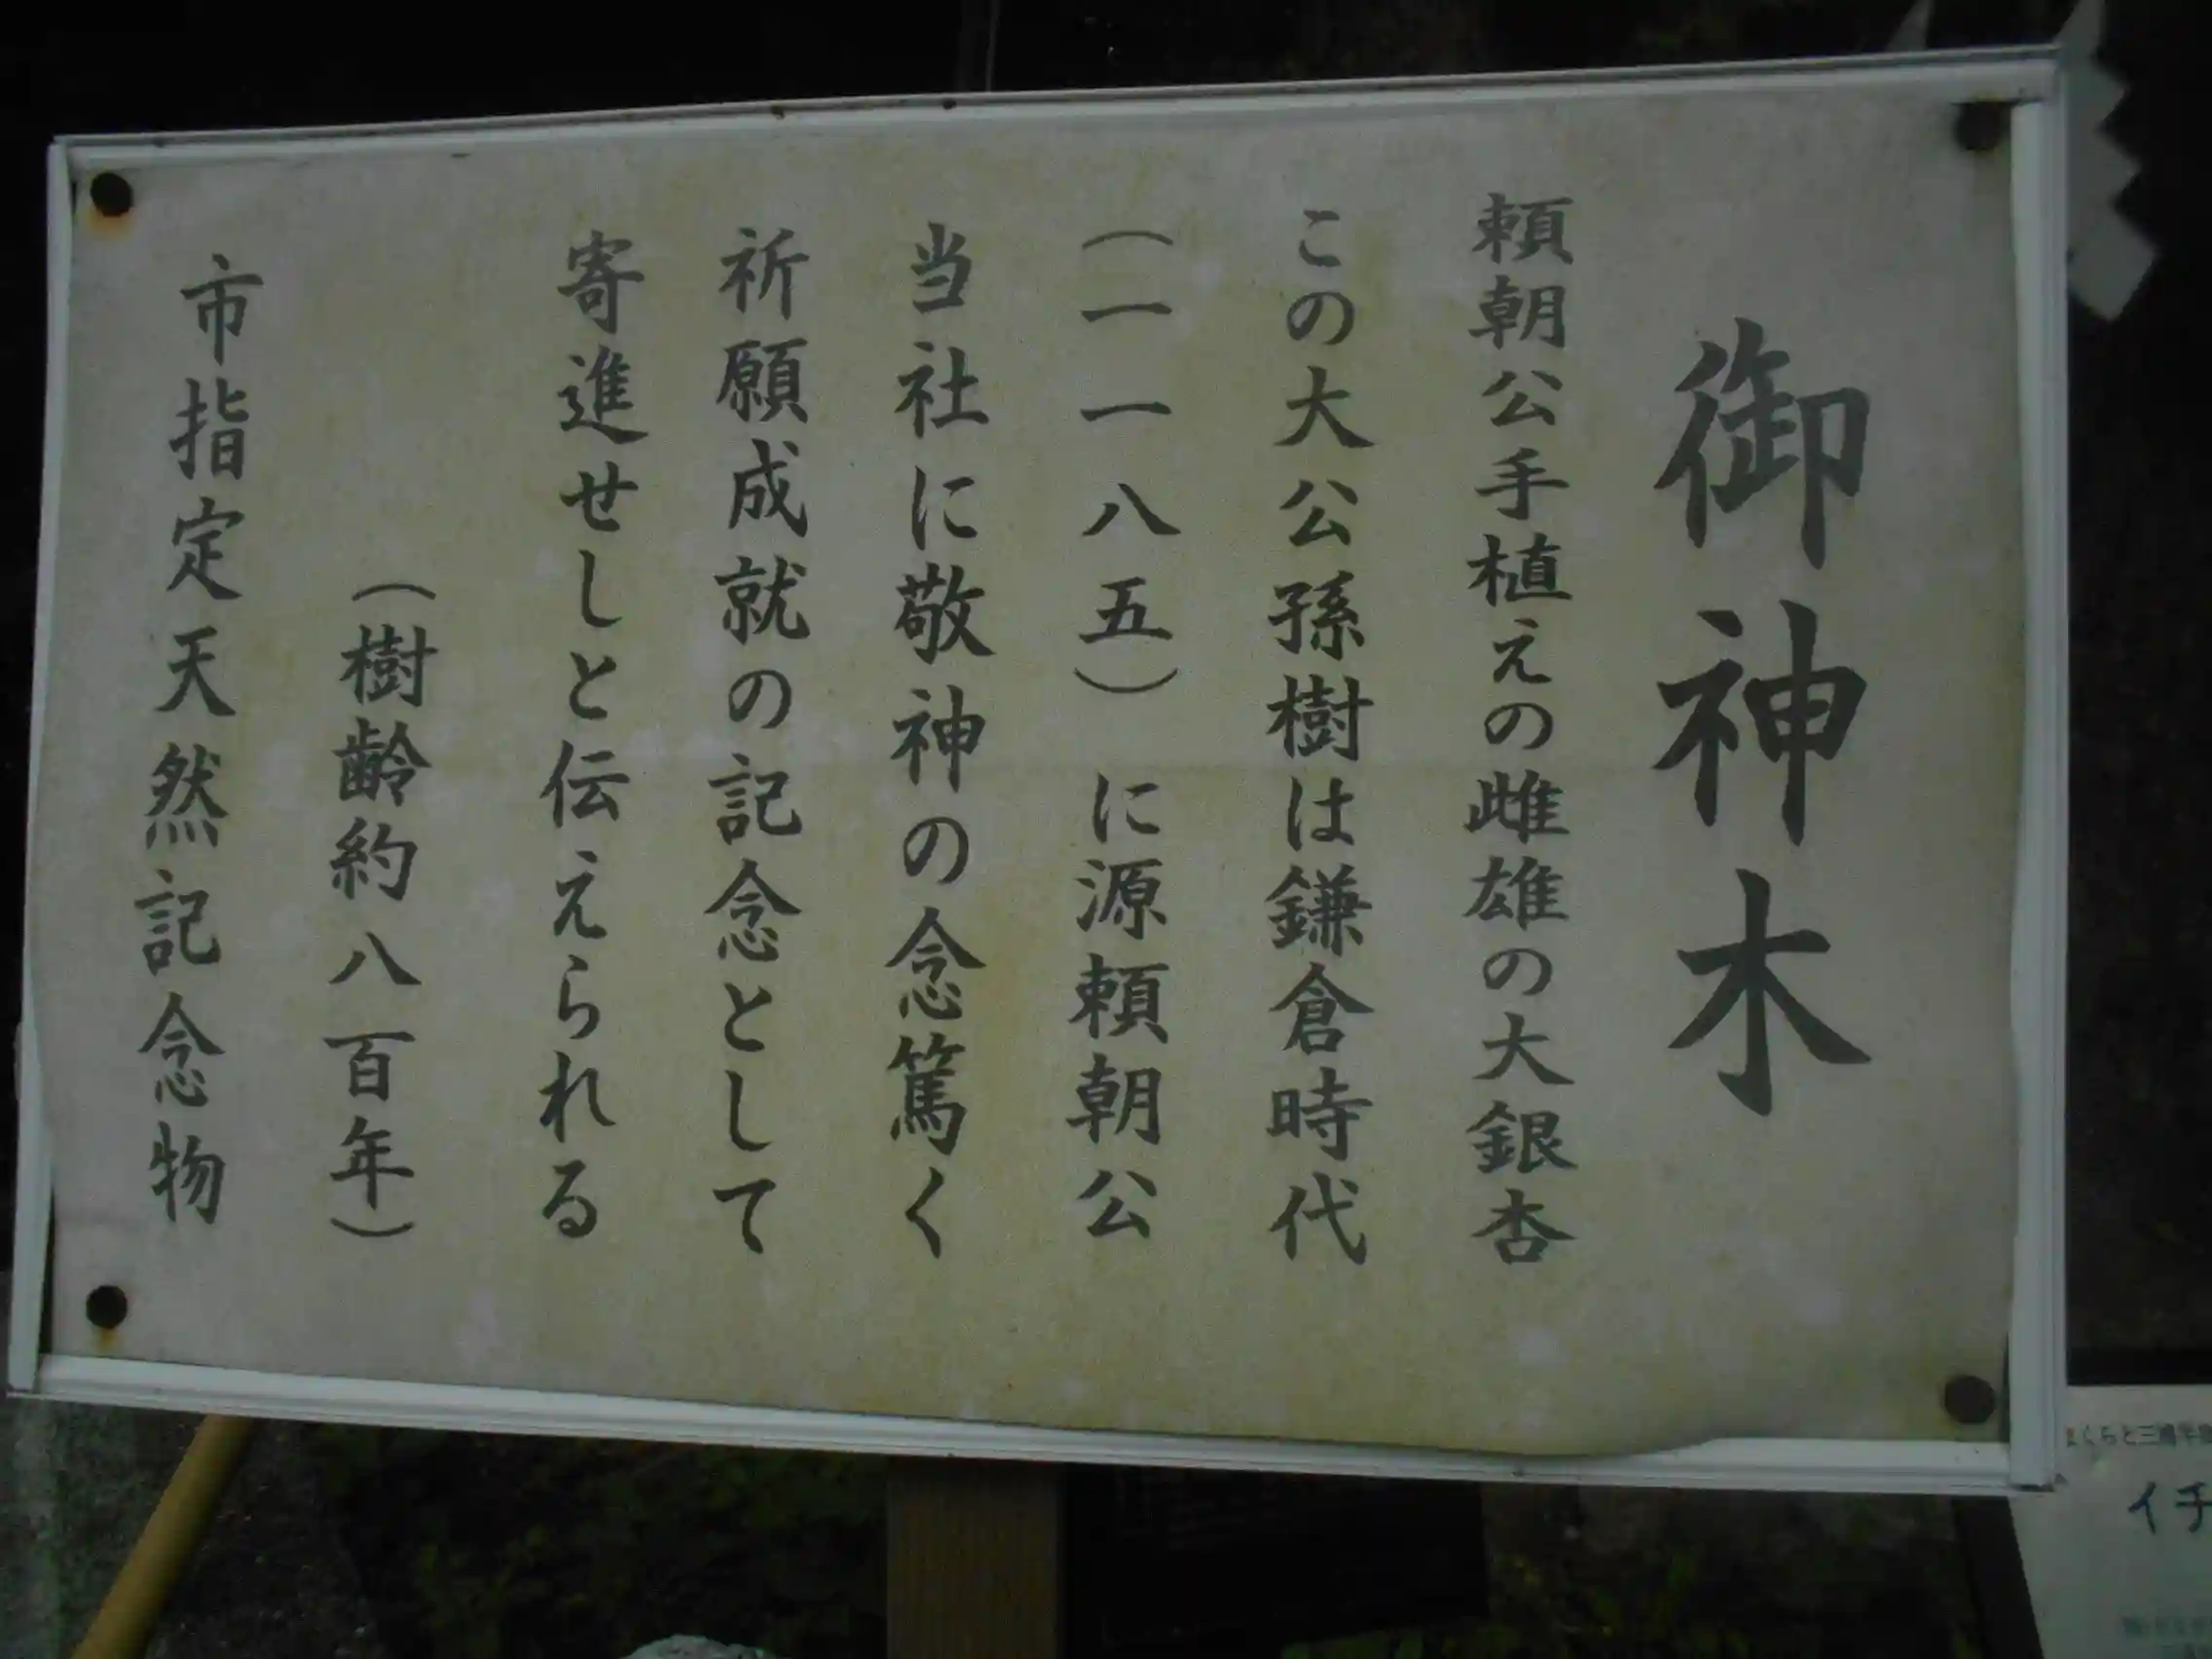 御神木
頼朝公手植えの雌雄の大銀杏
この大公孫樹は鎌倉時代
(一一八五)に源頼朝公
当社に敬神の念篤く
祈願成就の記念として
寄進せしと伝えられる
(樹齢約八百年)
市指定天然記念物
イチ